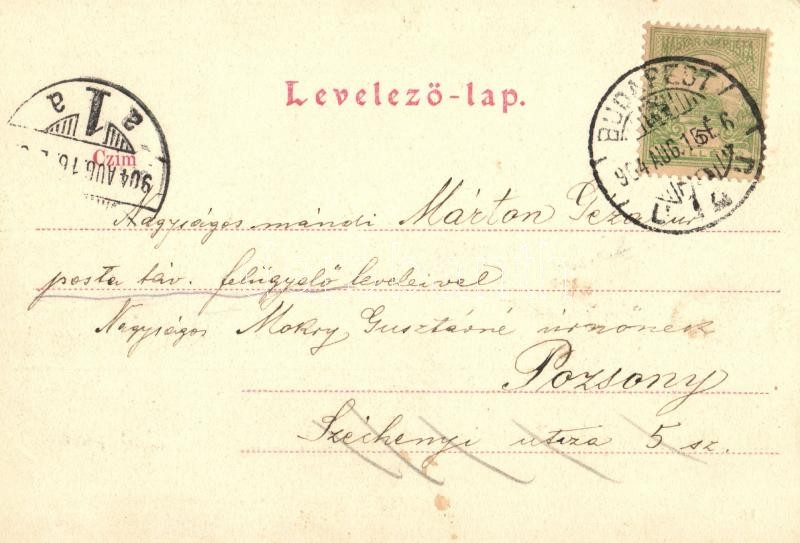 MAGYAR KIR. POSTA
Levelező-lap.
BUDAPEST
904 AUG. 16 E 6
1
a a
904 AUG. 16
Czim
Nagyságos mándi Márton Géza úr
posta táv. felügyelő leveleivel
Nagyságos Mokry Gusztávné úrnőnek
Pozsony
Széchenyi utcza 5 sz.